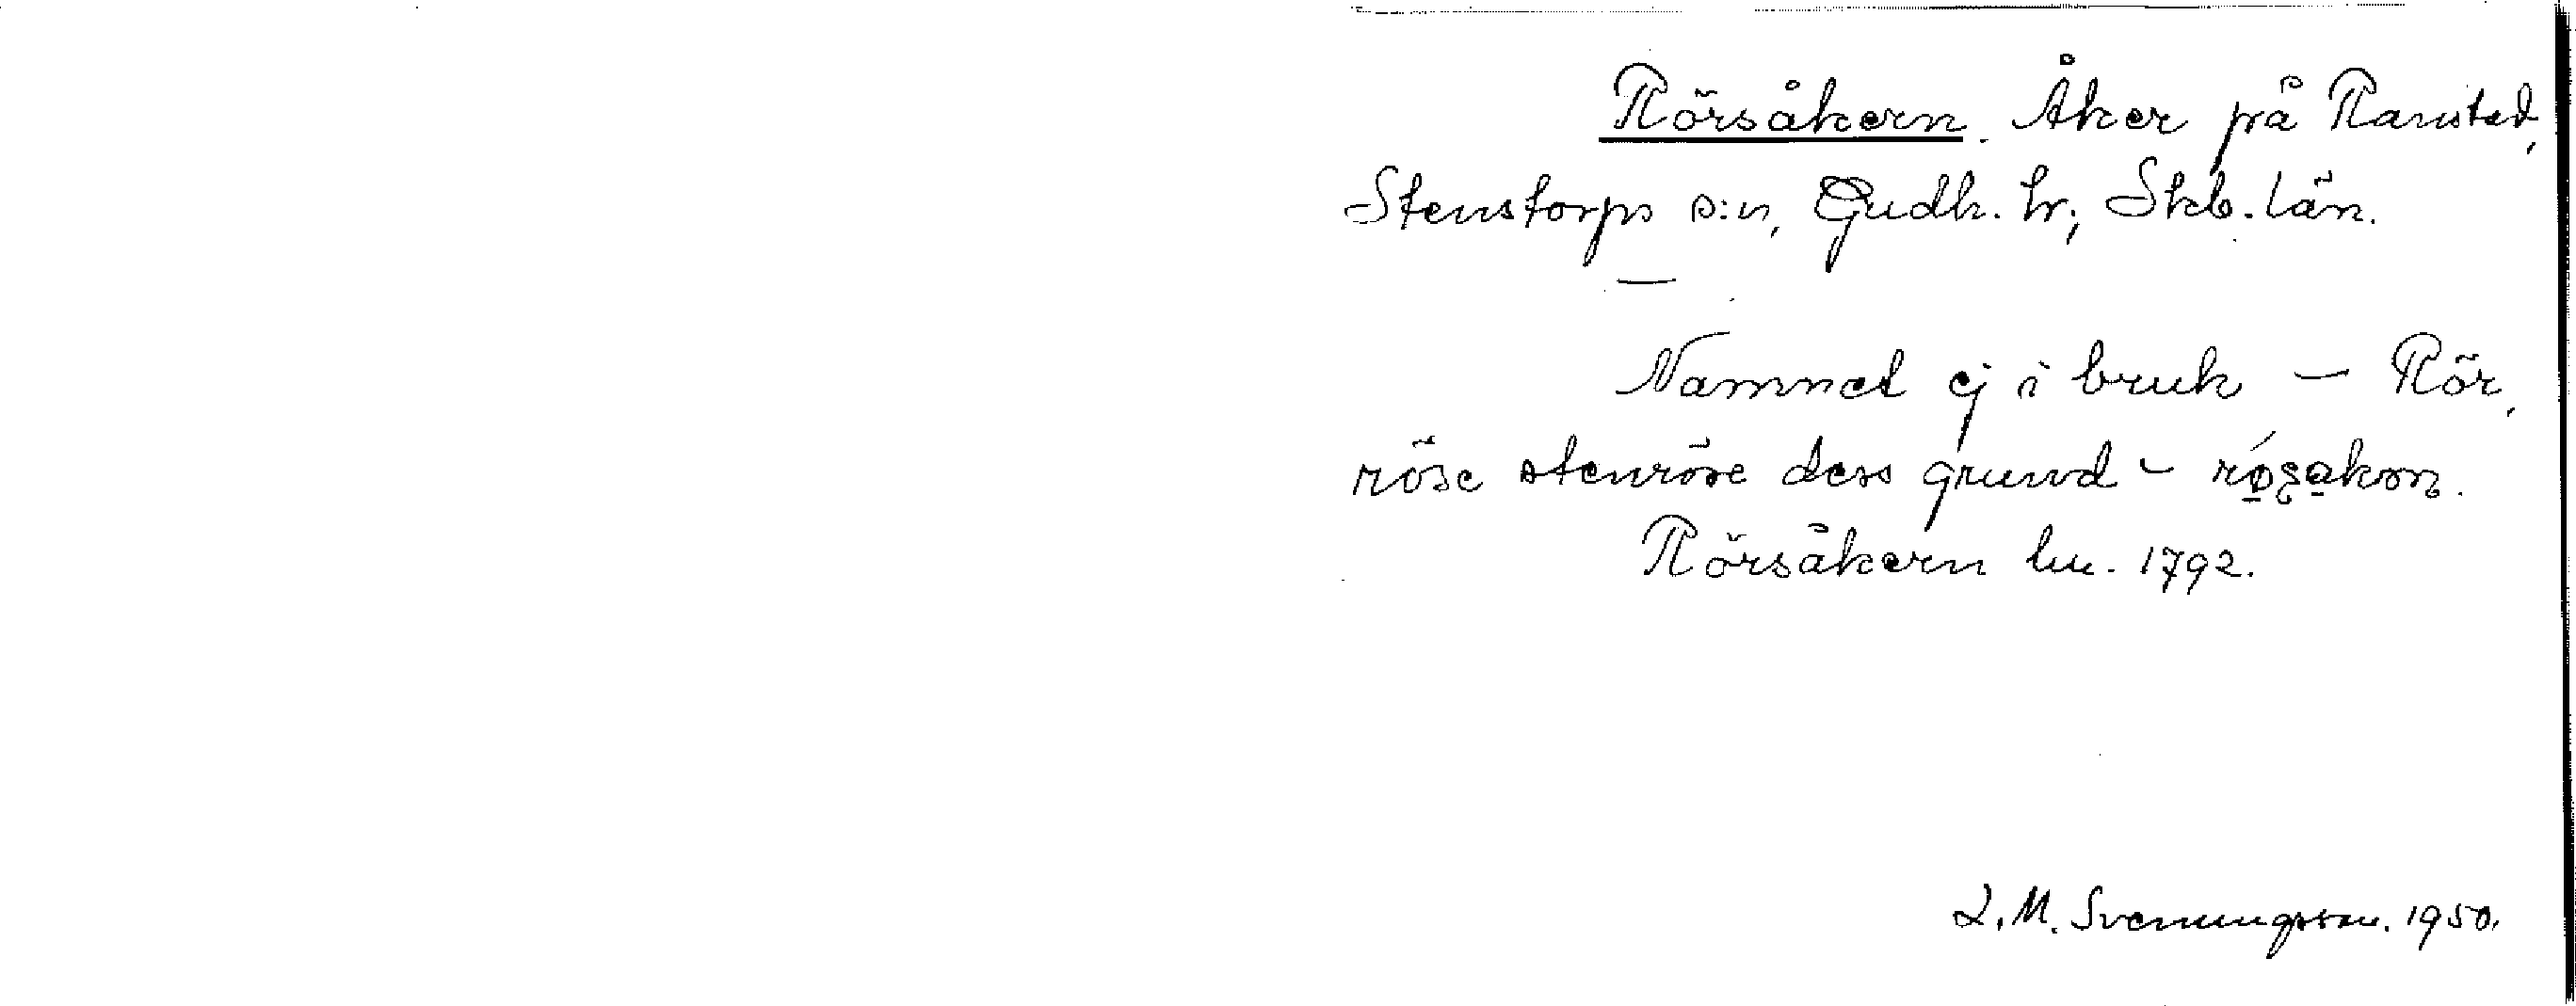 Rörsåkern. Åker på Ranstad,
Stenstorps s:n, Gudh. hr, Skb. län.
—
Namnet ej i bruk – Rör,
röse stenröse dess grund –
Rörsåkern lm. 1792.
L. M. Svenungsson. 1950.